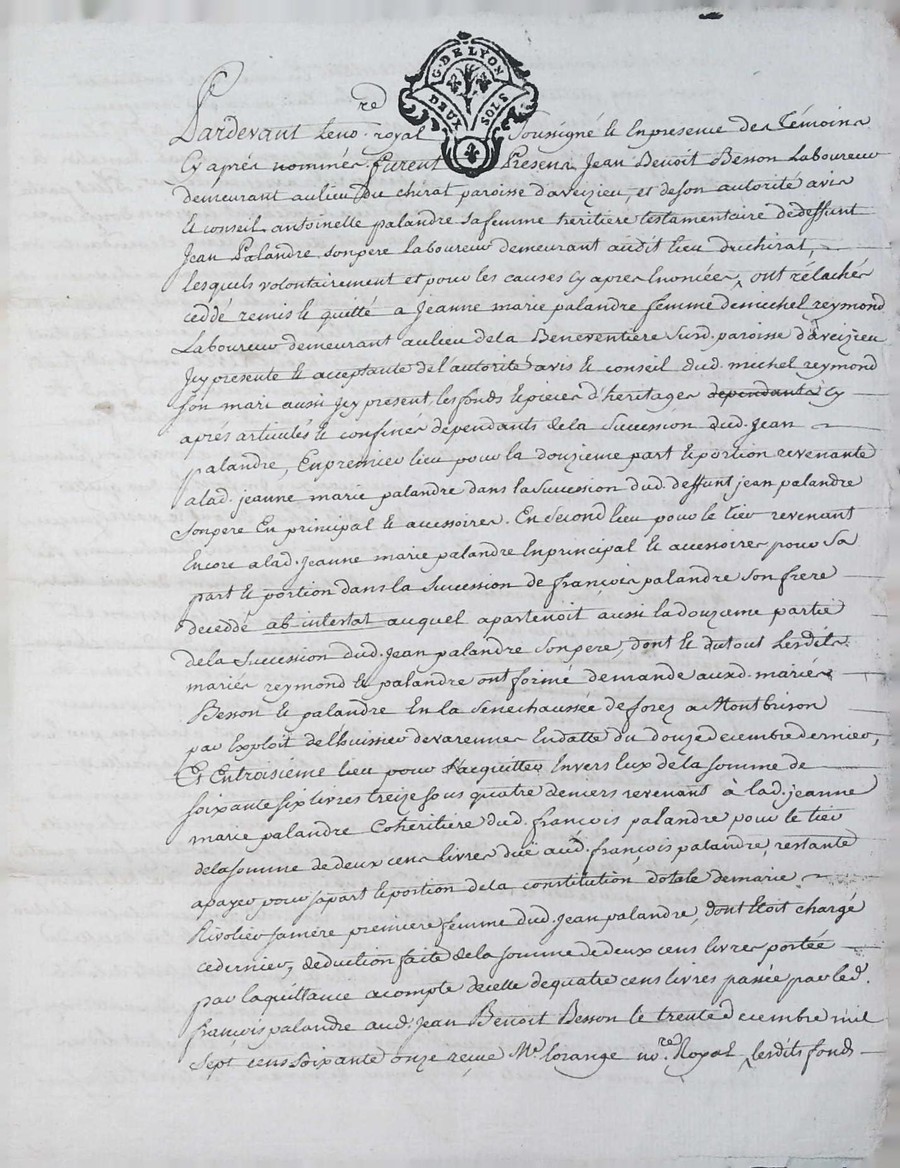 G. DE LYON
DEUX SOLS
Pardevant le no.re royal Soussigné & en presence des Témoins
Cy aprés nommés furent Presens Jean Benoit Besson Laboureur
demeurant au lieu du chirat paroisse d'aveizieu, et de son autorité avis
& conseil antoinette palandre sa femme heritiere testamentaire de deffunt
Jean Palandre son pere laboureur demeurant audit lieu du chirat,
lesquels volontairement et pour les causes cy apres Enoncées, ont rélachés
ceddé remis & quitté a Jeanne marie palandre femme de michel reymond
Laboureur demeurant au lieu de la Beneventiere susd. paroisse d'aveizieu
Icy presente & acceptante de l'autorité avis & conseil dud. michel reymond
son mari aussi Icy present, les fonds & pieces d'heritages dependants cy
aprés articulés & confinés dépendants de la Succession dud. Jean
palandre, En premier lieu pour la douzieme part & portion revenante
a lad. jeanne marie palandre dans la Succession dud. deffunt jean palandre
son pere En principal & acessoires. En Second lieu pour le tier revenant
Encore a lad. Jeanne marie palandre En principal & accessoires pour sa
part & portion dans la Succession de françois palandre son frere
décéddé ab intestat auquel apartenoit aussi la douzeme partie
de la Succession dud. Jean palandre son pere, dont & du tout lesdits
mariés reymond & palandre ont formé demande auxd. mariés
Besson & palandre En la Senechaussée de forez a Montbrison
par Exploit de lhuissier devarennes En datte du douze decembre dernier,
Et En troisieme lieu pour s'acquitter Envers Eux de la somme de
soixante six livres treize sous quatre deniers revenant à lad. jeanne
marie palandre Coheritiere dud. françois palandre pour le tier
de la somme de deux cens livres duë aud. françois palandre, restante
a payer pour sa part & portion de la constitution dotale de marie
Rivolier sa mere premiere femme dud. Jean palandre, dont Etoit chargé
ce dernier, deduction faite de la somme de deux cens livres portée
par la quittance a compte de celle de quatre cens livres passée par led.
françois palandre aud. Jean Benoit Besson le trente decembre mil
Sept cens soixante onze reçue M.e lorange no.re Royal, lesdits fonds